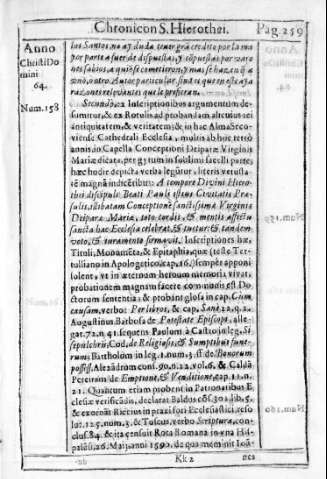 Chronicon S. Hierothei. Pag. 259
Anno
Christi Do
mini
64.
Num. 158
los Santos no ay duda tener gran credito por la ma
yor parte a fuer de disputas, y
nes sabios, a quien se cometieron, y mas se hazen
ò
zones relevantes que le prefieran.
Secundò, ex Inscriptionibus argumentum de-
sumitur, & ex Rotulis ad probandam alicuius rei
antiquitatem, & veritatem; & in hac Almæ Seco-
viensis Cathedrali Ecclesia, multis ab hinc retrò
annis, in Capella Conceptioni Deiparæ Virginis
Mariæ dicata, per in sublimi sacelli parte,
hæc hodie depicta verba legũtur, literis vetusta-
tẽ magnã indicãtibus: A tempore Divini Hiero-
thei discipuli Beati Pauli istius Civitatis Præ-
sulis, illibatam Conceptionẽ sanctissimæ Virginis
Deiparæ Mariæ, toto cordis, & mentis affectu
sancta hæc Ecclesia celebrat, & tuetur: & tandem
voto, & iuramento firmavit. Inscriptiones hæ,
Tituli, Monumẽta, & Epitaphia, quæ (teste Ter-
tulliano in Apologetico, cap. 16.) semper apponi
solent, ut in æternum heroum memoria vivat,
probationem magnam facere communis est Do-
ctorum sententia; & probant glosa in cap. Cum
causam, verbo: Per libros, & cap. Sanè 22. q. 2.
Augustinus Barbosa de Potestate Episcopi, alle-
gat. 72. n. 41. sequens Paulum à Castro in leg. Si
sepulchris, Cod. de Religiosis, & Sumptibus fune-
rum: Bartholom. in leg. 1. num. 3. ff. de Bonorum
possess. Alexandrum cons. 90. n. 22. vol. 6. & Caldã
Pereiram de Emptione, & Venditione, cap. 12. n.
21. Quæ cum etiam probent in Patronatibus Ec-
clesiæ verificãdis, declarat Baldus cõs. 302. lib. 5.
& exornat Riccius in praxi fori Ecclesiastici, reso-
lut. 125. num. 3. & Tuscus, verbo Scriptura, con-
clus. 84. & ita censuit Rota Romana in vna His-
palẽsi, 26. Maij, anni 1590. de qua meminit Ioã-
Kk 2
nes